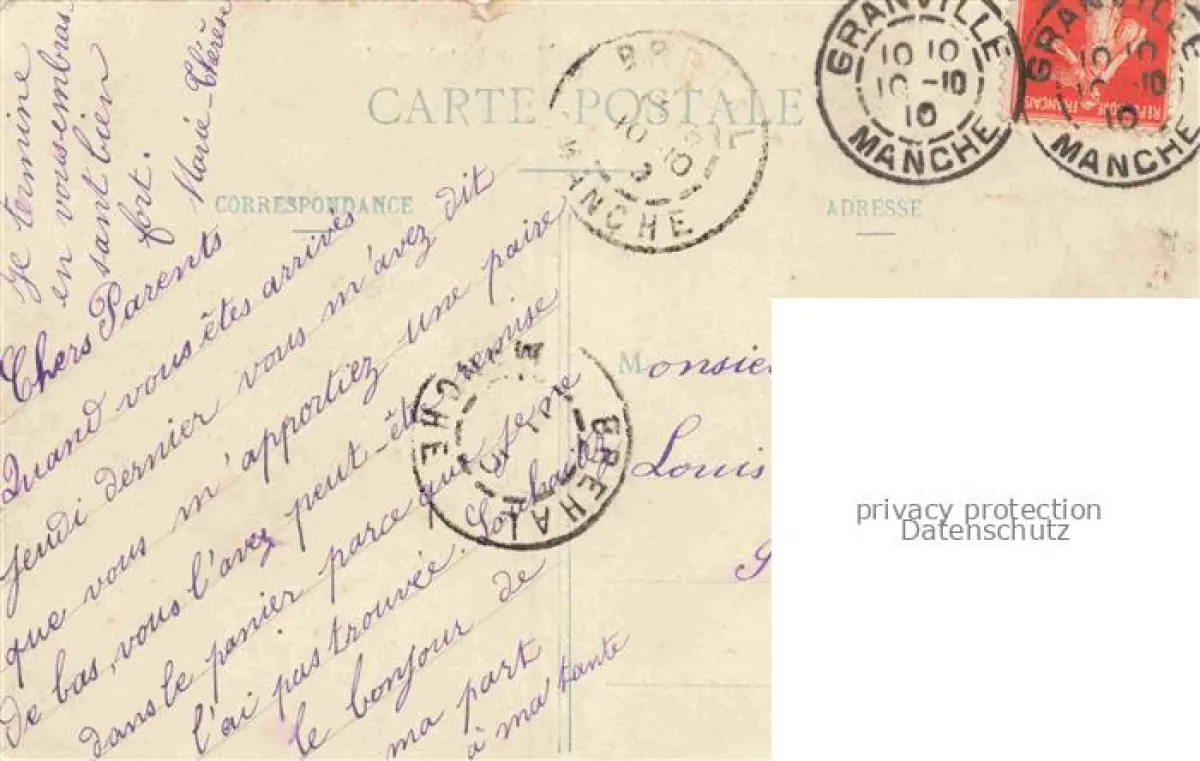 CARTE POSTALE
CORRESPONDANCE
ADRESSE
Chers Parents
Quand vous êtes arrivés
jeudi dernier vous m'avez dit
que vous m'apportiez une paire
de bas, vous l'avez peut-être remise
dans le panier parce que je ne
l'ai pas trouvée. Souhaitez
le bonjour de
ma part
à ma tante
Je termine
en vous embras
sant bien
fort.
Marie-Thérèse
Monsie
Louis
GRANVILLE
10 10
10 -10
10
MANCHE
GRANVILLE
10 10
10 -10
10
MANCHE
REPUBLIQUE FRANÇAISE
BRÉHAL
MANCHE
BREHAL
MANCHE
privacy protection
Datenschutz